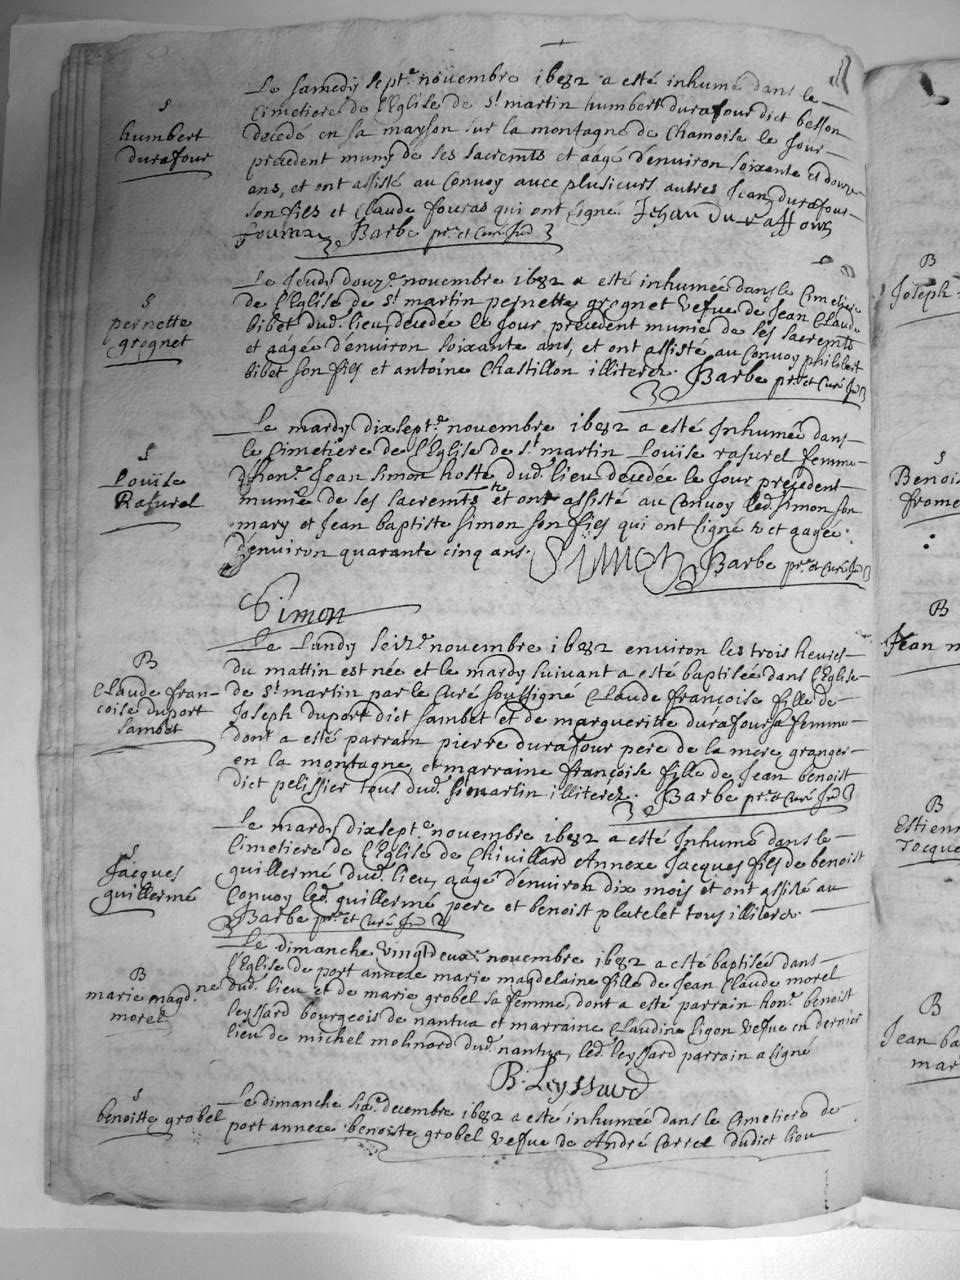 S
humbert
durafour
Le samedy sept.e novembre 1682 a esté inhumé dans le
Cimetiere de l'Eglise de st martin humbert durafour dict besson
decede en sa mayson sur la montagne de Chamoise le Jour
precedent muny de ses sacremts et aagé d'environ soixante et douze
ans, et ont assisté au Convoy avec plusieurs autres Jean durafour
son fils et Claude fouras qui ont signé Jehan Duraffour
Barbe pr.e et Curé
S
pernette
grognet
Le Jeudy douz.e novembre 1682 a esté inhumée dans le Cimetiere
de l'Eglise de st martin pernette grognet vefve de Jean Claude
bibet dud. lieu, decedée le Jour precedent munie de ses sacremts
et aagée d'environ soixante ans, et ont assisté au Convoy philibert
bibet son fils et antoine Chastillon illiterez. Barbe pr.e et Curé
S
Louïse
Rasurel
Le mardy dixsept.e novembre 1682 a esté Inhumée dans
le Cimetiere de l'Eglise de st martin Louïse rasurel femme
d'hon.e Jean Simon hoste dud. lieu decedée le Jour precedent
munie de ses sacremts et ont assisté au Convoy led. simon son
mary et Jean baptiste simon son fils qui ont signé et aagée
d'environ quarante cinq ans. Simon Barbe pr.e et Curé
Simon
B
Claude fran-
coise duport
sambet
Le Lundy seiz.e novembre 1682 environ les trois heures
du mattin est née et le mardy suivant a esté baptisée dans l'Eglise
de st martin par le Curé soussigné Claude françoise fille de
Joseph duport dict sambet et de marguerite durafour sa femme
dont a esté parrain pierre durafour pere de la mere granger
en la montagne, et marraine françoise fille de Jean benoist
dict pelissier tous dud. st martin illiterez. Barbe pr.e et Curé
S
Jacques
guillermé
Le mardy dixsept.e novembre 1682 a esté Inhumé dans le
Cimetiere de l'Eglise de Chivillard Annexe Jacques fils de benoist
guillermé dud. lieu, aagé d'environ dix mois et ont assisté au
Convoy led. guillermé pere et benoist platelet tous illiterez.
Barbe pr.e et Curé
B
marie magd.ne
morel
Le dimanche vingtdeux.e novembre 1682 a esté baptisée dans
l'Eglise de port annexe marie magdelaine fille de Jean Claude morel
dud. lieu et de marie grobel sa femme, dont a esté parrain hon.e benoist
leyssard bourgeois de nantua et marraine Claudine ligon vefve en dernier
lieu de michel molinard dud. nantua, led. leyssard parrain a signé
B. Leyssard
S
benoiste grobel
Le dimanche six.e decembre 1682 a esté inhumée dans le Cimetiere de
port annexe benoiste grobel vefve de André Carrel dudict lieu
B
Joseph
S
Benois
frome
B
Jean m
B
Estien
Jacque
B
Jean ba
mar